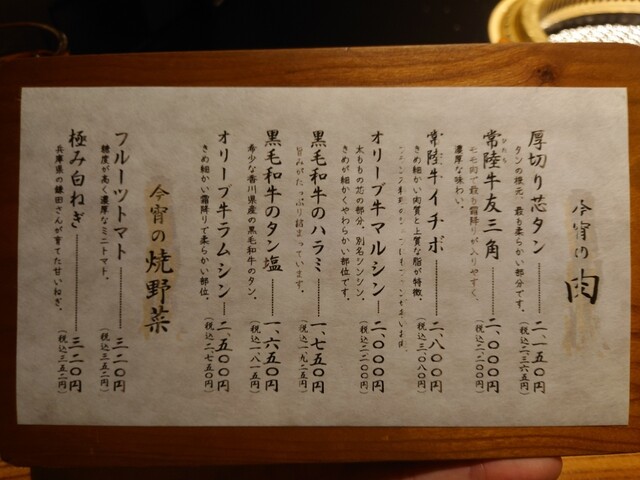 今宵の肉
厚切り芯タン 二、一五〇円
タンの根元、最も柔らかい部分です。 (税込二、三六五円)
常陸牛友三角 二、〇〇〇円
モモ肉で最も霜降りが入りやすく、 (税込二、二〇〇円)
濃厚な味わい。
常陸牛イチボ 二、八〇〇円
きめ細かい肉質と上質な脂が特徴。 (税込三、〇八〇円)
オリーブ牛マルシン 二、〇〇〇円
太ももの芯の部分。別名シンシン。 (税込二、二〇〇円)
きめが細かくやわらかい部位です。
黒毛和牛のハラミ 一、七五〇円
旨みがたっぷり詰まっています。 (税込一、九二五円)
黒毛和牛のタン塩 一、六五〇円
希少な香川県産の黒毛和牛のタン。 (税込一、八一五円)
オリーブ牛ラムシン 二、五〇〇円
きめ細かい霜降りで柔らかい部位。 (税込二、七五〇円)
今宵の焼野菜
フルーツトマト 三二〇円
糖度が高く濃厚なミニトマト。 (税込三五二円)
極み白ねぎ 三二〇円
兵庫県の鎌田さんが育てた甘いねぎ。 (税込三五二円)